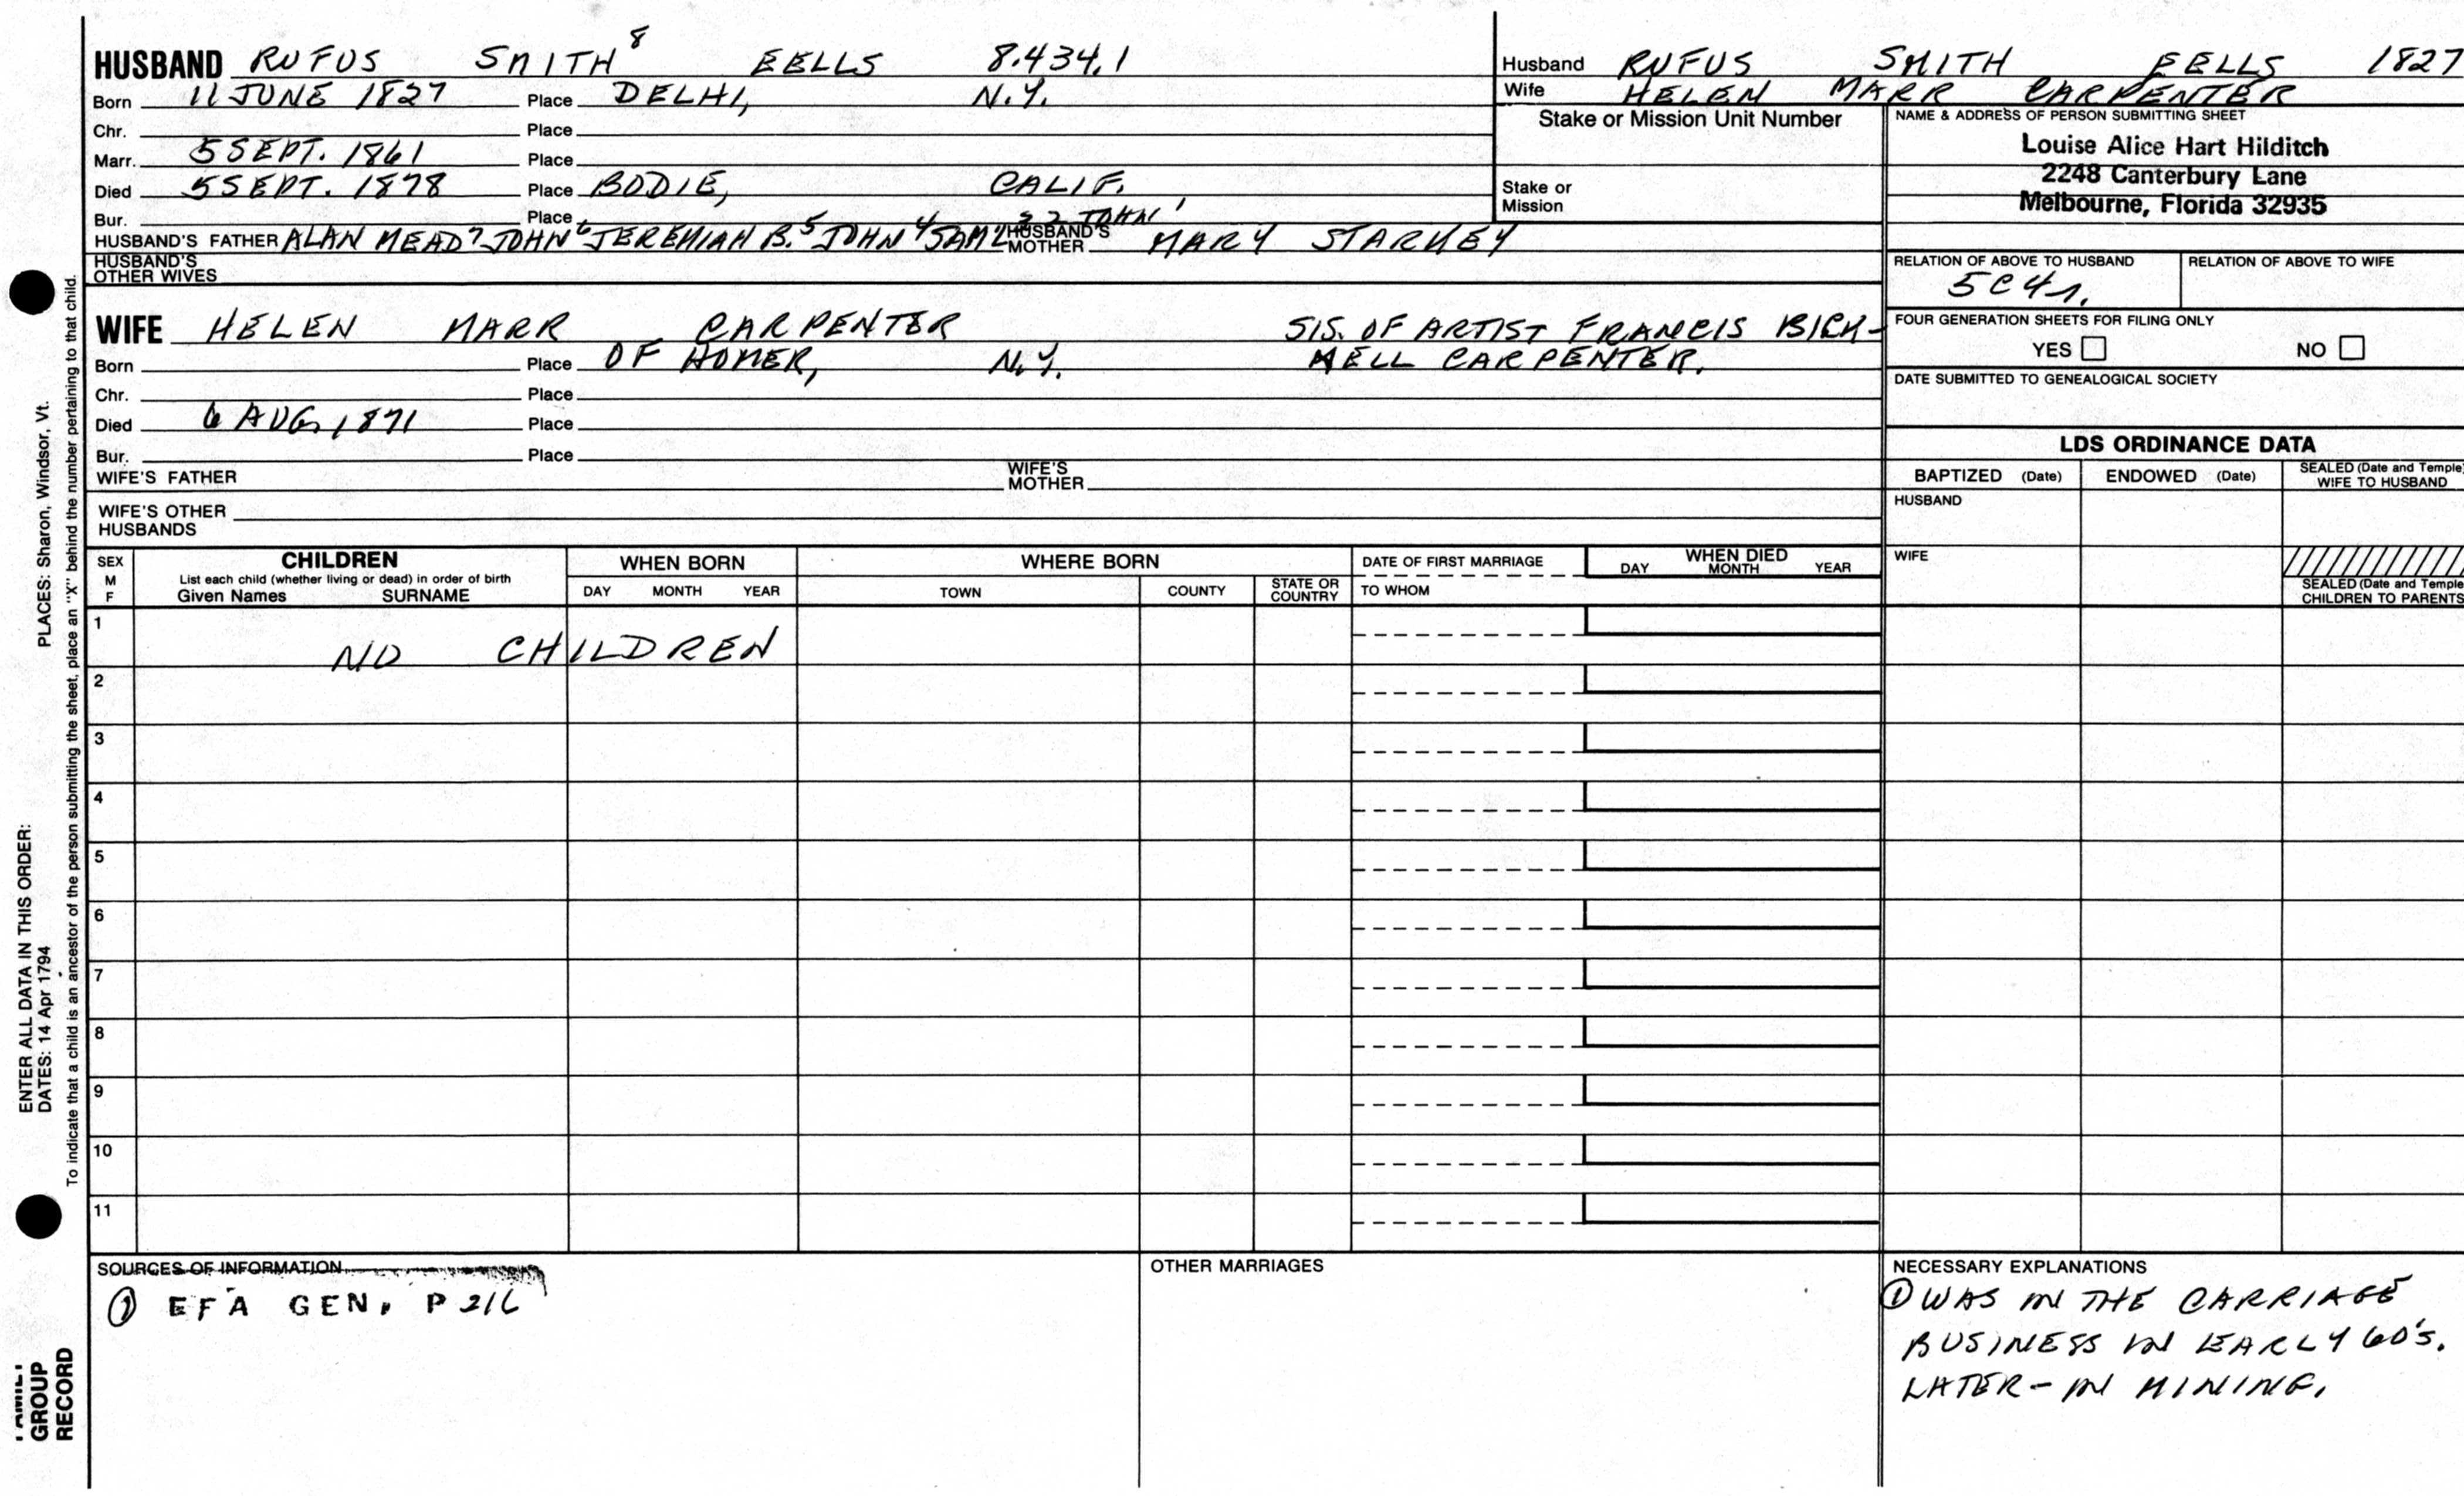 HUSBAND RUFUS SMITH⁸ EELLS 8.434.1
Born 11 JUNE 1827 Place DELHI, N.Y.
Chr. Place
Marr. 5 SEPT. 1861 Place
Died 5 SEPT. 1878 Place BODIE, CALIF.
Bur. Place
HUSBAND'S FATHER ALAN MEAD⁷ JOHN⁶ JEREMIAH B.⁵ JOHN⁴ SAML 3 2 JOHN' HUSBAND'S MOTHER MARY STARKEY
HUSBAND'S OTHER WIVES
Husband RUFUS SMITH EELLS 1827
Wife HELEN MARR CARPENTER
Stake or Mission Unit Number
Stake or
Mission
NAME & ADDRESS OF PERSON SUBMITTING SHEET
Louise Alice Hart Hilditch
2248 Canterbury Lane
Melbourne, Florida 32935
RELATION OF ABOVE TO HUSBAND RELATION OF ABOVE TO WIFE
5C4r.
FOUR GENERATION SHEETS FOR FILING ONLY
YES NO
DATE SUBMITTED TO GENEALOGICAL SOCIETY
WIFE HELEN MARR CARPENTER SIS. OF ARTIST FRANCIS BICK-
Born Place OF HOMER, N.Y. NELL CARPENTER.
Chr. Place
Died 6 AUG, 1871 Place
Bur. Place
WIFE'S FATHER WIFE'S MOTHER
WIFE'S OTHER
HUSBANDS
LDS ORDINANCE DATA
BAPTIZED (Date) ENDOWED (Date) SEALED (Date and Temple) WIFE TO HUSBAND
HUSBAND
WIFE
SEALED (Date and Temple) CHILDREN TO PARENTS
SEX M F CHILDREN WHEN BORN WHERE BORN DATE OF FIRST MARRIAGE WHEN DIED
List each child (whether living or dead) in order of birth
Given Names SURNAME DAY MONTH YEAR TOWN COUNTY STATE OR COUNTRY TO WHOM DAY MONTH YEAR
1
NO CHILDREN
2
3
4
5
6
7
8
9
10
11
SOURCES OF INFORMATION
① EFA GEN. P 216
OTHER MARRIAGES
NECESSARY EXPLANATIONS
① WAS IN THE CARRIAGE
BUSINESS IN EARLY 60'S.
LATER - IN MINING.
ENTER ALL DATA IN THIS ORDER:
DATES: 14 Apr 1794 PLACES: Sharon, Windsor, Vt.
To indicate that a child is an ancestor of the person submitting the sheet, place an "X" behind the number pertaining to that child.
FAMILY
GROUP
RECORD